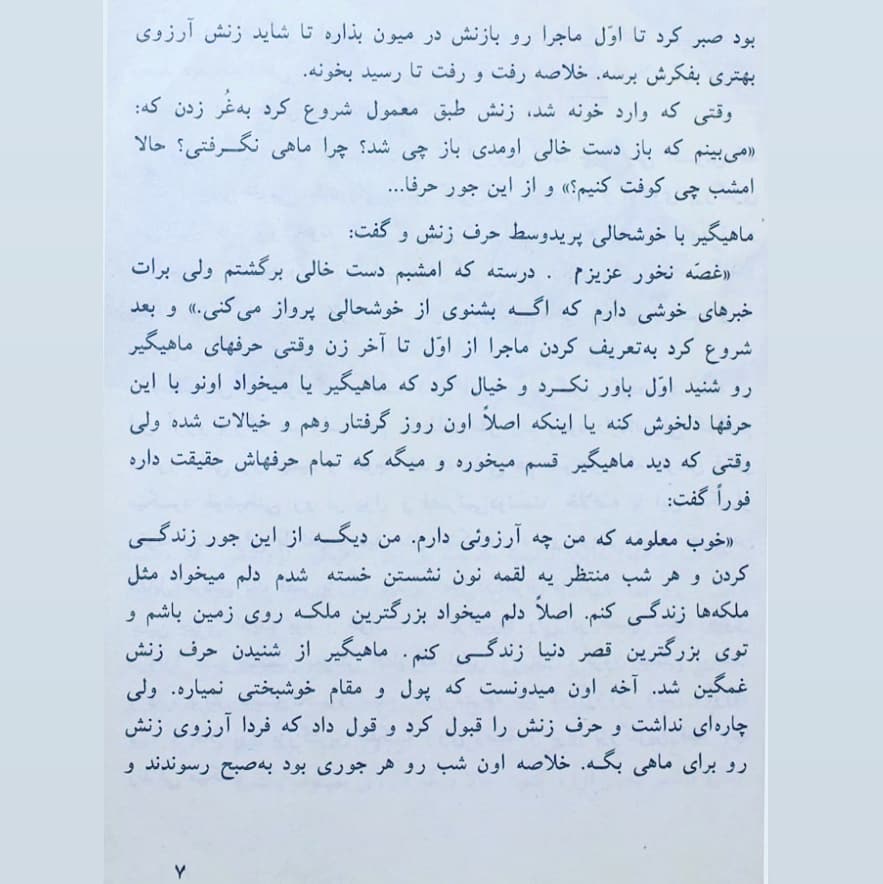 بود صبر کرد تا اوّل ماجرا رو بازنش در میون بذاره تا شاید زنش آرزوی
بهتری بفکرش برسه. خلاصه رفت و رفت تا رسید بخونه.
وقتی که وارد خونه شد، زنش طبق معمول شروع کرد به‌غُر زدن که:
«می‌بینم که باز دست خالی اومدی باز چی شد؟ چرا ماهی نگـــرفتی؟ حالا
امشب چی کوفت کنیم؟» و از این جور حرفا...
ماهیگیر با خوشحالی پریدوسط حرف زنش و گفت:
«غصّه نخور عزیزم . درسته که امشبم دست خالی برگشتم ولی برات
خبرهای خوشی دارم که اگـــه بشنوی از خوشحالی پرواز می‌کنی.» و بعد
شروع کرد به‌تعریف کردن ماجرا از اوّل تا آخر زن وقتی حرفهای ماهیگیر
رو شنید اوّل باور نکـــرد و خیال کرد که ماهیگیر یا میخواد اونو با این
حرفها دلخوش کنه یا اینکه اصلاً اون روز گرفتار وهم و خیالات شده ولی
وقتی که دید ماهیگیر قسم میخوره و میگه که تمام حرفهاش حقیقت داره
فوراً گفت:
«خوب معلومه که من چه آرزوئی دارم. من دیگـــه از این جور زندگـــی
کردن و هر شب منتظر یه لقمه نون نشستن خسته شدم دلم میخواد مثل
ملکه‌ها زندگـی کنم. اصلاً دلم میخواد بزرگترین ملکـه روی زمین باشم و
توی بزرگترین قصر دنیا زندگـــی کنم. ماهیگیر از شنیدن حرف زنش
غمگین شد. آخه اون میدونست که پول و مقام خوشبختی نمیاره. ولی
چاره‌ای نداشت و حرف زنش را قبول کرد و قول داد که فردا آرزوی زنش
رو برای ماهی بگـه. خلاصه اون شب رو هر جوری بود به‌صبح رسوندند و
۷